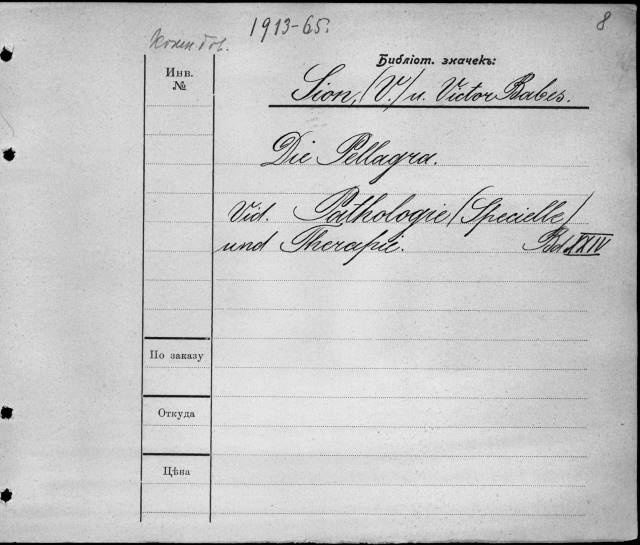 1913-65.
8
Библіот. значекъ:
Инв.
№
Sion, (V.) u. Victor Babes.
Die Pellagra.
Vid. Pathologie (Specielle)
und Therapie. Bd. XXIV
По заказу
Откуда
Цѣна